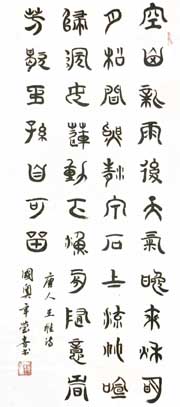 空山新雨後天氣晚來秋明
月松間照清泉石上流竹喧
歸浣女蓮動下漁舟隨意春
芳歇王孫自可留
唐人王維詩